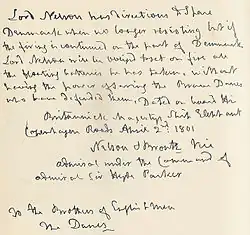 Lord Nelson has directions to spare
Denmark when no longer resisting but if
the firing is continued on the part of Denmark
Lord Nelson will be obliged to set on fire all
the floating batteries he has taken, without
having the power of saving the Brave Danes
who have defended them. Dated on board His
Britannick Majestys Ship Elephant
Copenhagen Roads April 2nd 1801
Nelson & Bronte Vice
admiral under the Command of
admiral Sir Hyde Parker
To the Brothers of Englishmen
The Danes